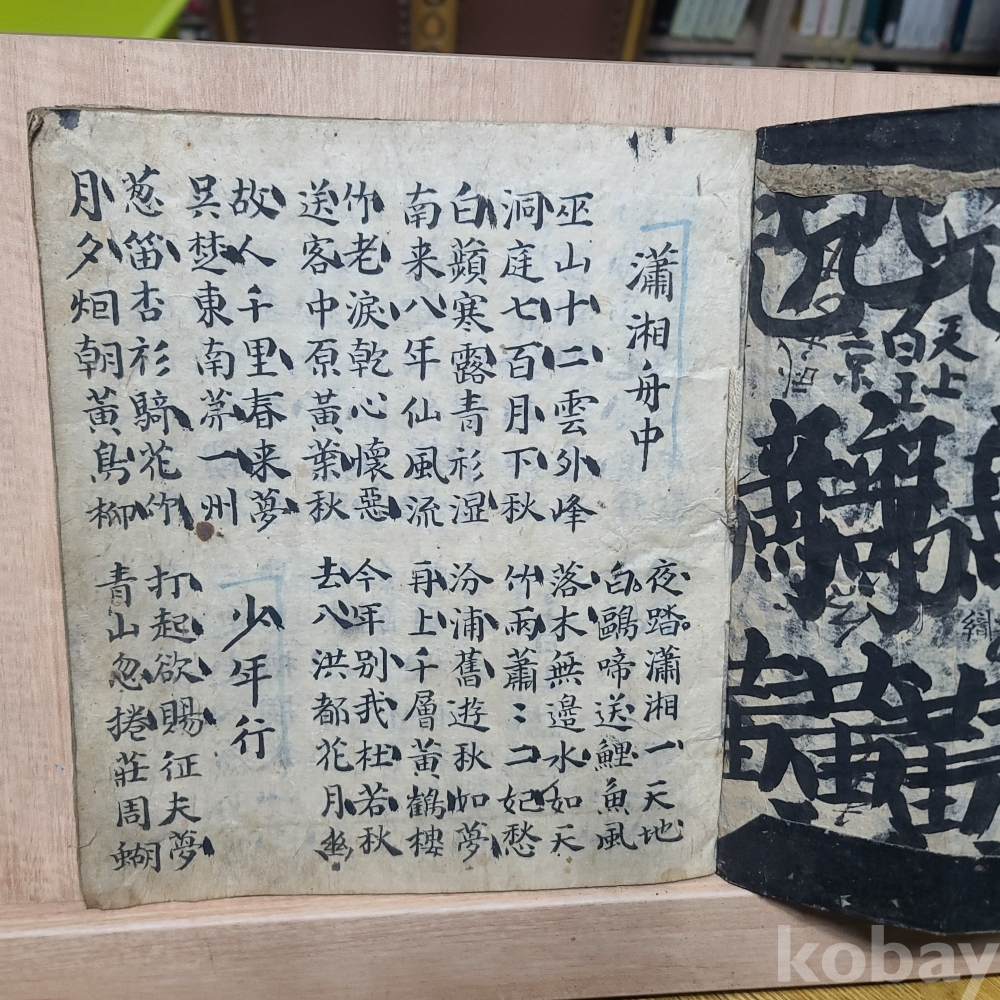 瀟湘舟中
夜踏瀟湘一天地
白鷗啼送鯉魚風
巫山十二雲外峰
洞庭七百月下秋
落木無邊水如天
竹雨蕭〻二妃愁
白蘋寒露青衫湿
南来八年仙風流
汾浦舊遊秋如夢
再上千層黃鶴樓
竹老淚乾心懷惡
送客中原黃葉秋
今年別我杜若秋
去八洪都花月幽
故人千里春来夢
吳楚東南茅一州
少年行
葱笛杏衫騎花竹
月夕烟朝黃鳥柳
打起欲賜征夫夢
青山忽捲莊周蝴
天上
白玉
京
kobay